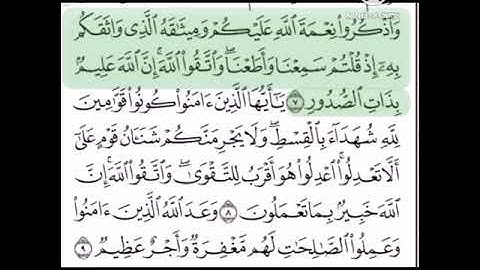 وَٱذۡكُرُواْ نِعۡمَةَ ٱللَّهِ عَلَيۡكُمۡ وَمِيثَٰقَهُ ٱلَّذِي وَاثَقَكُم
بِهِۦٓ إِذۡ قُلۡتُمۡ سَمِعۡنَا وَأَطَعۡنَاۖ وَٱتَّقُواْ ٱللَّهَۚ إِنَّ ٱللَّهَ عَلِيمُۢ
بِذَاتِ ٱلصُّدُورِ ٧ يَٰٓأَيُّهَا ٱلَّذِينَ ءَامَنُواْ كُونُواْ قَوَّٰمِينَ
لِلَّهِ شُهَدَآءَ بِٱلۡقِسۡطِۖ وَلَا يَجۡرِمَنَّكُمۡ شَنَـَٔانُ قَوۡمٍ عَلَىٰٓ
أَلَّا تَعۡدِلُواْۚ ٱعۡدِلُواْ هُوَ أَقۡرَبُ لِلتَّقۡوَىٰۖ وَٱتَّقُواْ ٱللَّهَۚ إِنَّ
ٱللَّهَ خَبِيرُۢ بِمَا تَعۡمَلُونَ ٨ وَعَدَ ٱللَّهُ ٱلَّذِينَ ءَامَنُواْ
وَعَمِلُواْ ٱلصَّٰلِحَٰتِ لَهُم مَّغۡفِرَةٞ وَأَجۡرٌ عَظِيمٞ ٩